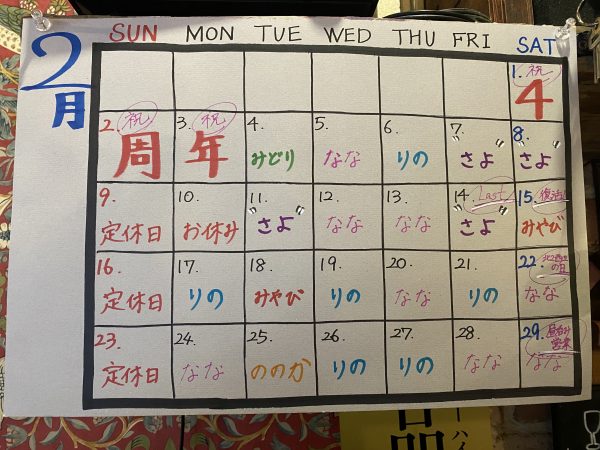 2月
SUN MON TUE WED THU FRI SAT
1. 祝
4
2. 祝
周
3. 祝
年
4.
みどり
5.
なな
6.
りの
7.
"さよ"
8.
"さよ"
9.
定休日
10.
お休み
11.
"さよ"
12.
なな
13.
なな
14. Last
"さよ"
15. 復活!
みやび
16.
定休日
17.
りの
18.
みやび
19.
りの
20.
なな
21.
りの
22.
の日
なな
23.
定休日
24.
なな
25.
ののか
26.
りの
27.
りの
28.
なな
29. 昼呑み
営業
なな
品
ーハイ